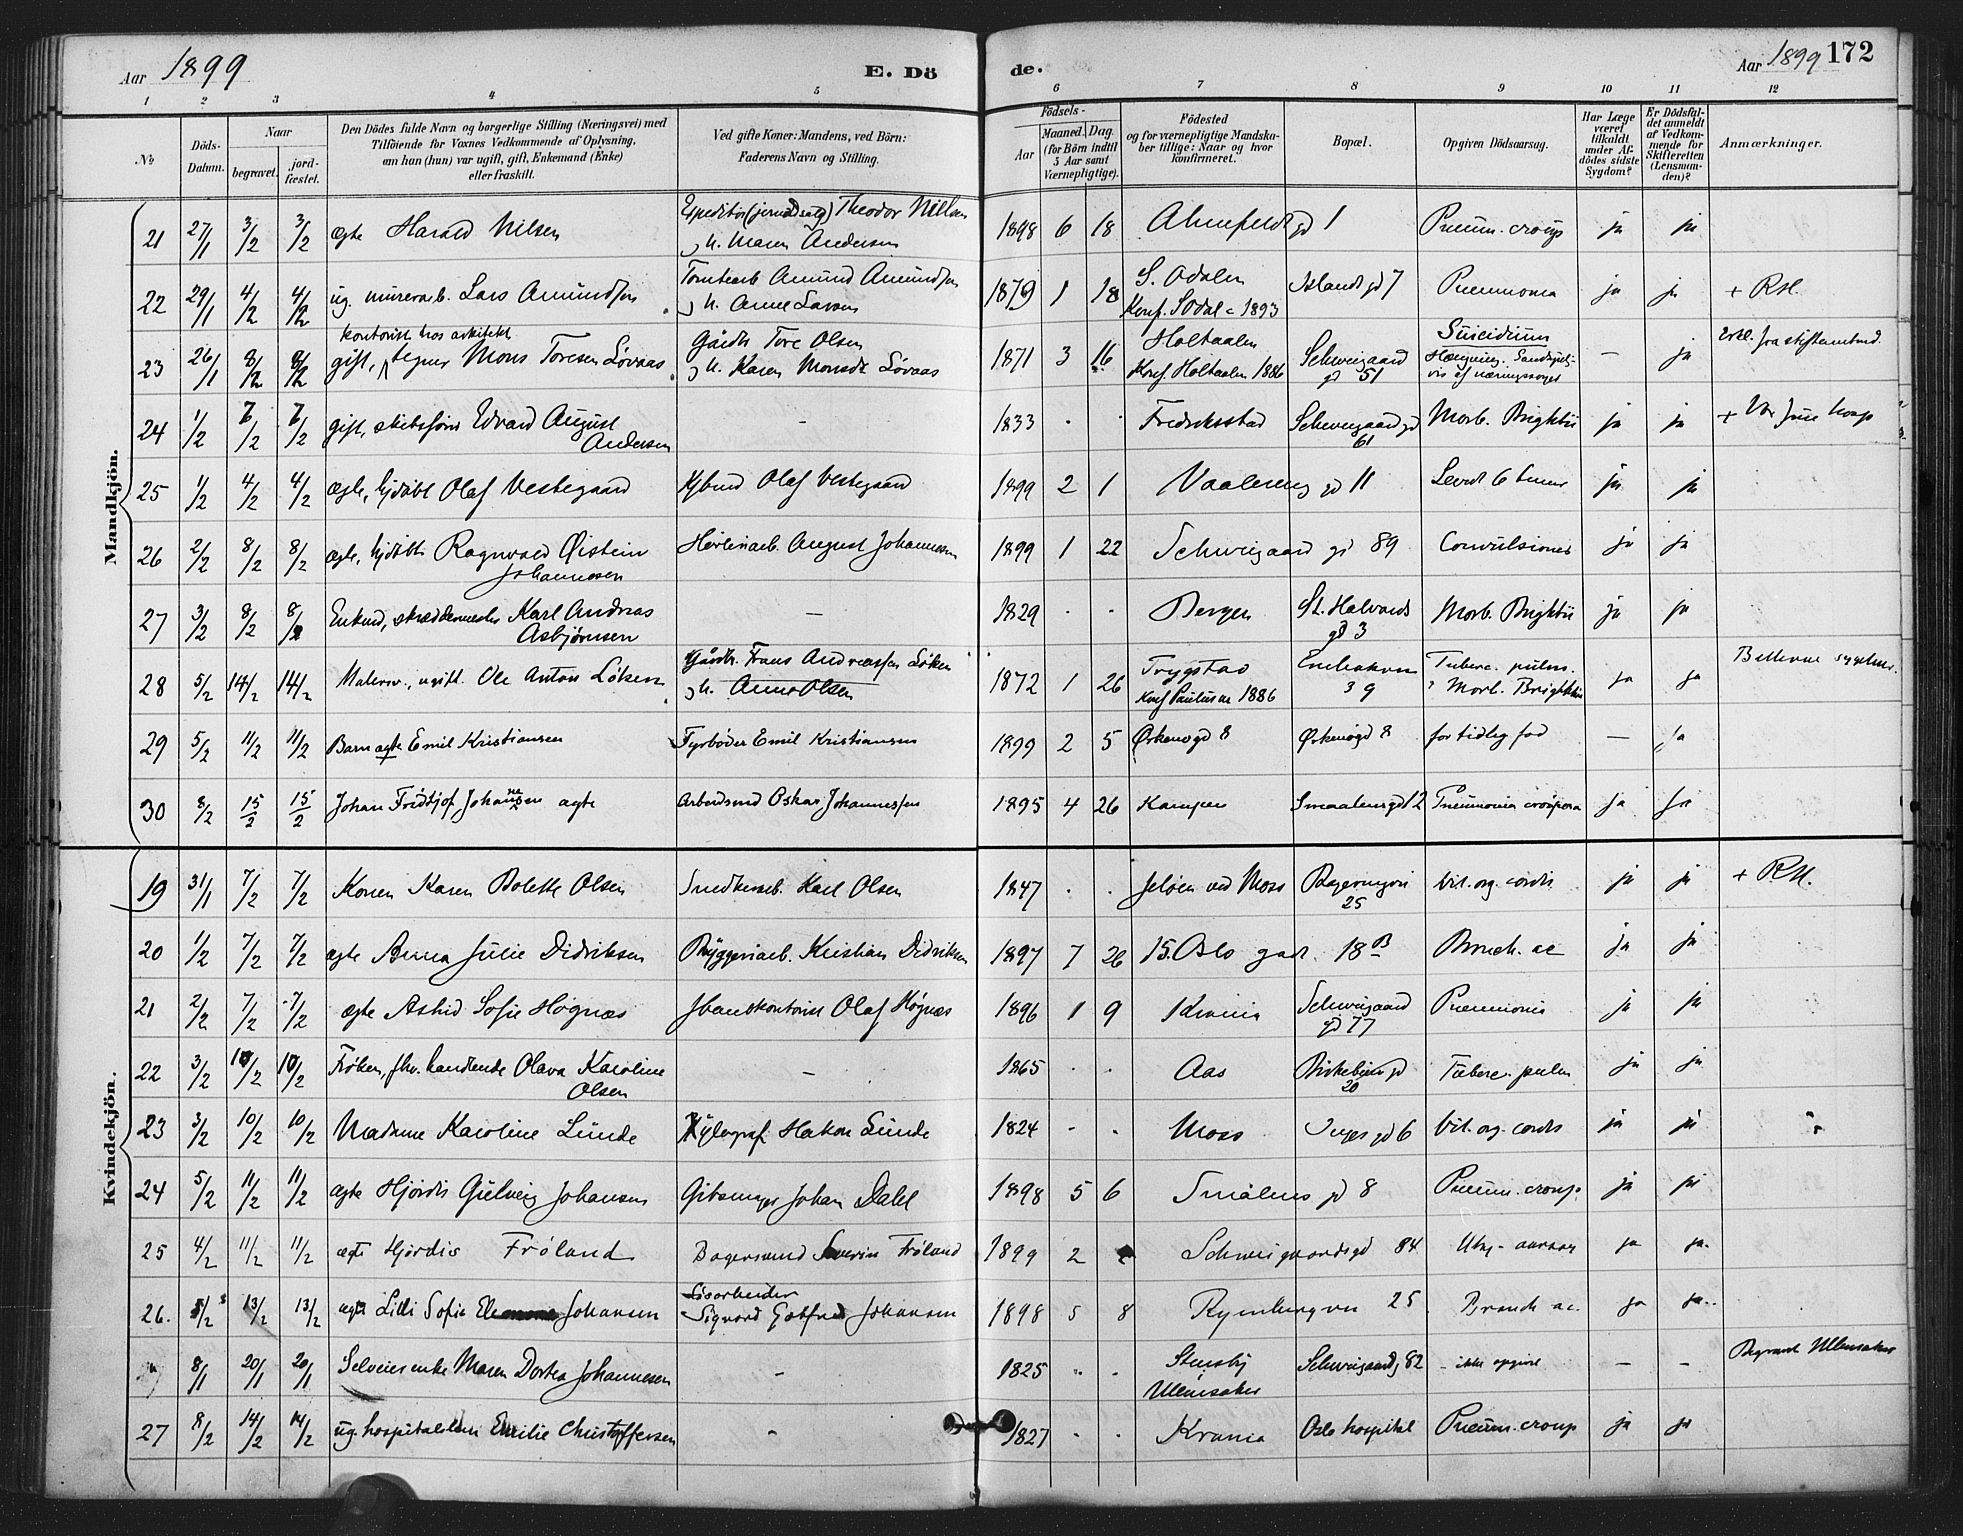 Aar 1899
E. Dö
de.
Aar 1899 172
1 2 3 4 5 6 7 8 9 10 11 12
No
Döds-Datum.
Naar
begravet.
jord-fæstet.
Den Dödes fulde Navn og borgerlige Stilling (Næringsvei) med
Tilföiende for Voxnes Vedkommende af Oplysning,
om han (hun) var ugift, gift, Enkemand (Enke)
eller fraskilt.
Ved gifte Koner: Mandens, ved Börn:
Faderens Navn og Stilling.
Födsels-
Aar
Maaned. Dag.
(for Börn indtil
5 Aar samt
Værnepligtige).
Födested
og for værnepligtige Mandska-
ber tillige: Naar og hvor
konfirmeret.
Bopæl.
Opgiven Dödsaarsag.
Har Læge
været
tilkaldt
under Af-
dödes sidste
Sygdom?
Er Dödsfal-
det anmeldt
af Vedkom-
mende for
Skifteretten
(Lensman-
den)?
Anmærkninger.
Mandkjön.
21 27/1 3/2 3/2 ægte Harald Nilsen Theodor Nilsen h. Maren Andersen 1898 6 18 gd 1 Pneum. croup ja ja
22 29/1 4/2 4/2 ug. murerarb. Lars Amundsen Tomtearb Amund Amundsen 1879 1 18 S. Odalen Konf. S Odal 1893 Islands gd 7 Pneumonia ja ja + RH.
23 26/1 8/2 8/2 kontorist hos arkitekt gift, tegner Mons Toresen Lövaas Gårdbr Tore Olsen h. Karen Monsdr Lövaas 1871 3 16 Holtaalen Konf. Holtaalen 1886 Schweigaard gd 51 Suicidium Hængning. Sandsynligvis af næringssorger — ja
24 1/2 7/2 7/2 gift, skibsförer Edvard August Andersen – 1833 · · Fredriksstad Schweigaard gd 61 Morb. Brightii ja ja + Vor Frue hosp
25 1/2 4/2 4/2 ægte, hjdöbt Olaf Vestegaard Olaf Vestegaard 1899 2 1 Vaalereng gd 11 Levet 6 timer ja ja
26 2/2 8/2 8/2 ægte, hjdöbt Ragnvald Øistein Johannesen August Johannesen 1899 1 22 Schweigaard gd 89 Convulsiones ja ja
27 3/2 8/2 8/2 Enkmd, skræddermester Karl Andreas Asbjörnsen – 1829 · · Bergen St. Halvards gd 3 Morb. Brightii ja ja
28 5/2 14/2 14/2 Malersv., ugift. Ole Anton Löken Gårdbr. Frans Andreassen Löken h. Anna Olsen 1872 1 26 Trygstad Konf Paulus 1886 39 Tuberc. pulm. Morb. Brightii ja ja Bellevue sygehus.
29 5/2 11/2 11/2 Barn ægte Emil Kristiansen Fyrböder Emil Kristiansen 1899 2 5 Ørkengd 8 Ørkengd 8 for tidlig fød — ja
30 8/2 15/2 15/2 Johan Fridtjof Johannesen ægte Arbeidsmd Oskar Johannessen 1895 4 26 Kampen Smaalensgd 12 Pneumonia crouposa ja ja
Kvindekjön.
19 31/1 7/2 7/2 Konen Karen Bolette Olsen Snedkerarb. Karl Olsen 1847 · · Jelöen ved Moss 25 Vit. org. cordis ja ja + RH.
20 1/2 7/2 7/2 ægte Anna Julie Didriksen Bryggeriarb. Kristian Didriksen 1897 7 26 15. Oslo gad. 18 B Bronch. ac ja ja
21 2/2 7/2 7/2 ægte Astrid Sofie Högnæs Olaf Högnæs 1896 1 9 Krania Schweigaard gd 77 Pneumonia ja ja
22 3/2 10/2 10/2 Fröken, fhv. handlende Olava Karoline Olsen – 1865 · · Aas Birkebein gd 20 Tuberc. pulm ja ja
23 3/2 10/2 10/2 Madame Karoline Lunde Xylograf Hakon Lunde 1824 · · Moss Inges gd 6 Vit. org. cordis ja ja
24 5/2 11/2 11/2 ægte Hjördis Gudveig Johansen Gibsmager Johan Dahl 1898 5 6 Smålens gd 8 Pneum. croup. ja ja
25 4/2 11/2 11/2 ægte Hjördis Fröland Bagersvend Severin Fröland 1899 2 Schweigaardsgd 84 Ubkj. aarsag ja ja.
26. 5/2 13/2 13/2 ægte Lilli Sofie Johansen Sigvard Gotfred Johansen 1898 5 8 25 Bronch ac. ja ja.
8/1 20/1 20/1 Selveierenke Maren Dortea Johannesen – 1825 · · Stensby Ullensaker Schweigaardg 82 – ikke opgivet – – Begravet Ullensaker
27 8/2 14/2 14/2 ug. hospitalslem Emilie Christoffersen – 1827 · · Krania Oslo hospital Pneum. croup ja ja